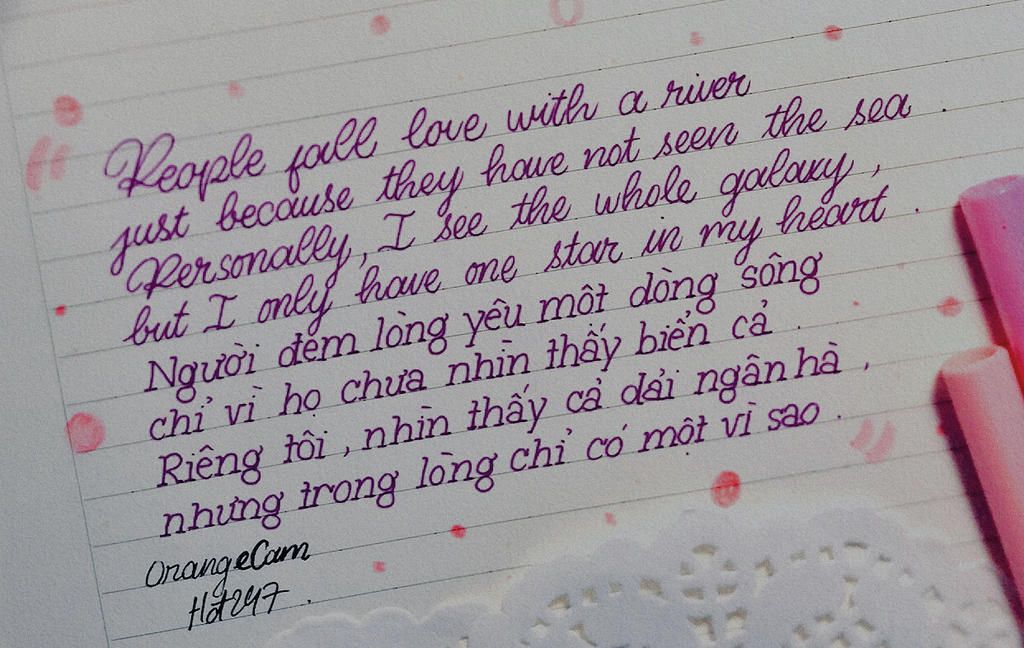 People fall love with a river
just because they have not seen the sea .
Personally, I see the whole galaxy,
but I only have one star in my heart .
Người đem lòng yêu một dòng sông
chỉ vì họ chưa nhìn thấy biển cả .
Riêng tôi, nhìn thấy cả dải ngân hà ,
nhưng trong lòng chỉ có một vì sao .
OrangeCam
Hot247 .